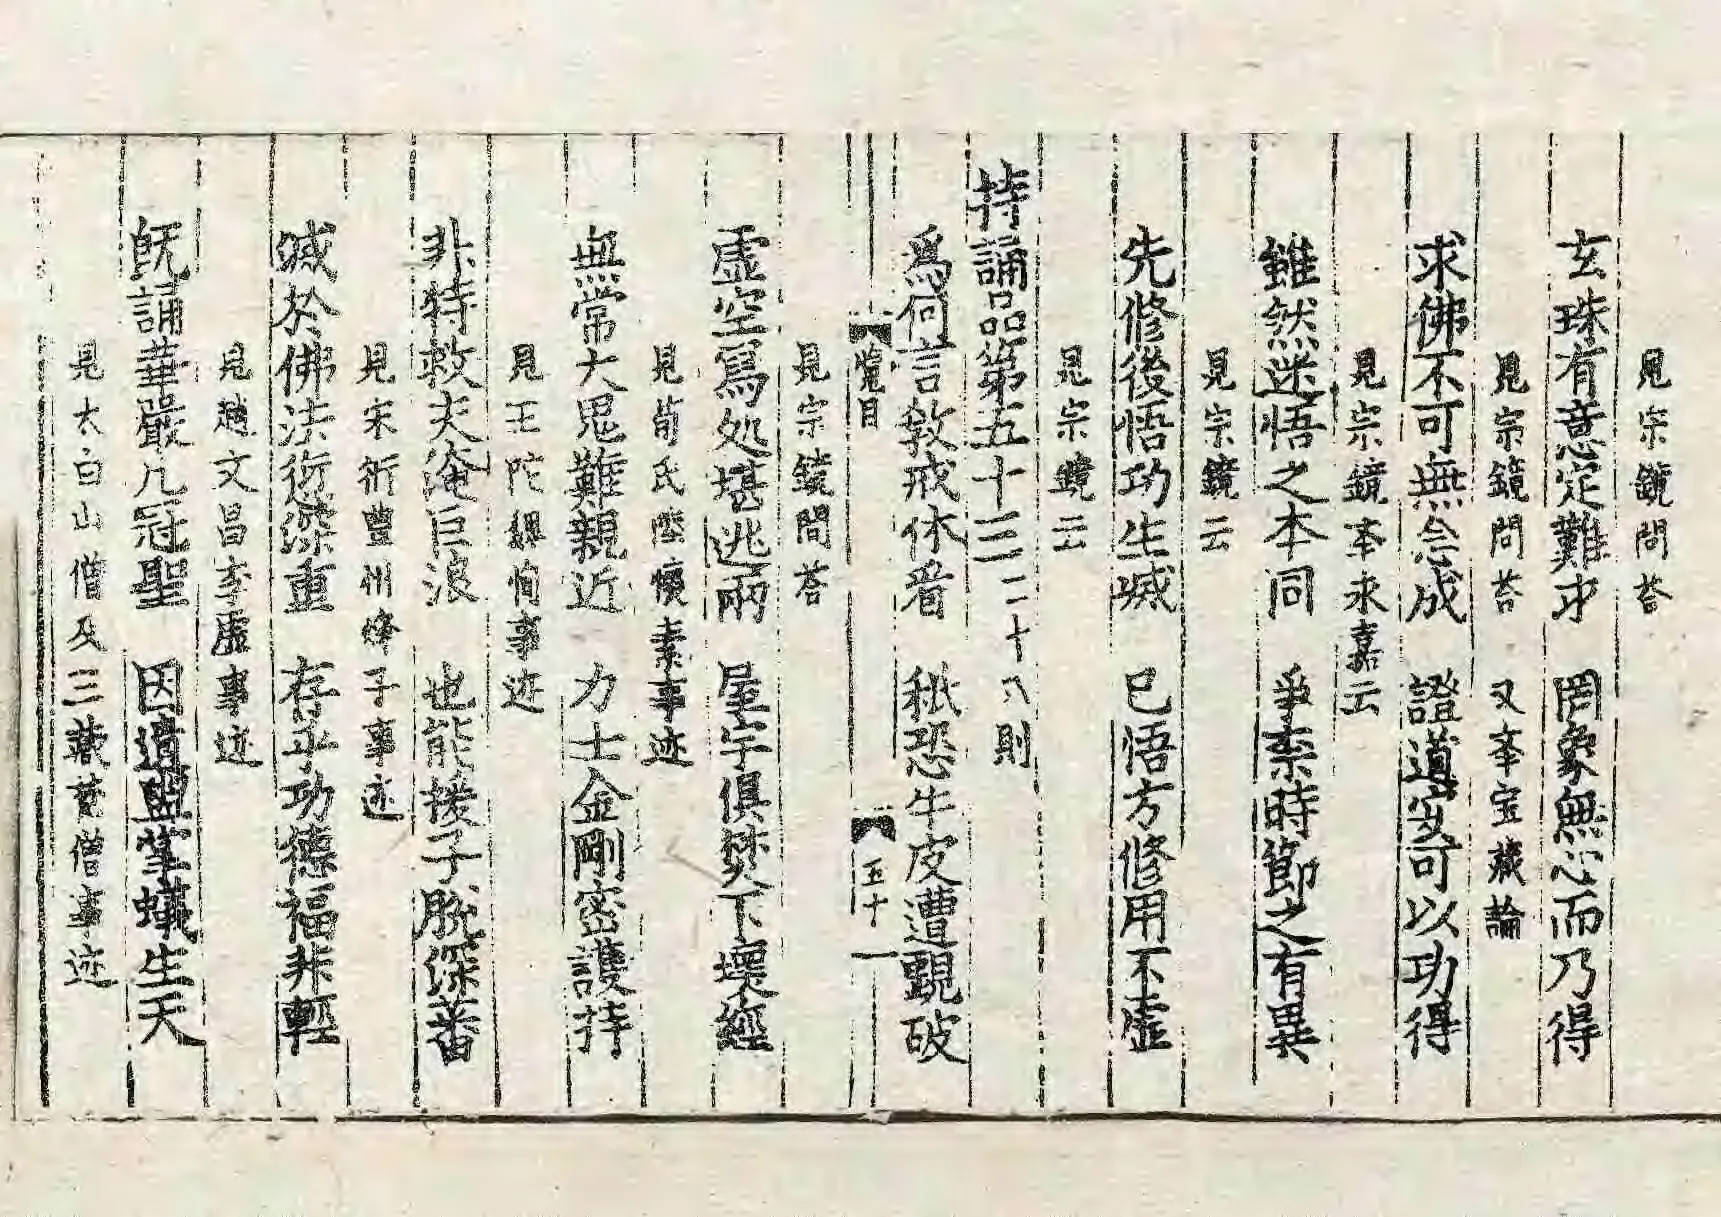 見宗鏡問荅
玄珠有意定難求　罔象無心而乃得
見宗鏡問荅　又夲宝蔵論
求佛不可無念成　證道寔可以功得
見宗鏡夲永嘉云
雖然迷悟之本同　爭柰時節之有異
見宗鏡云
先修後悟功生㓕　已悟方修用不虛
見宗鏡云
持誦品第五十三二十八則
爲何言教戒休看　秪恐牛皮遭覷破
覽目　五十一
見宗鏡問荅
虛空寫処堪逃兩　屋宇俱焚下壞經
見荀氏陸懷素事迹
無常大鬼難親近　力士金剛密護持
見王陀魏恂事迹
非特救夫淹巨浪　也能援子脫深蕃
見宋衎豊州烽子事迹
㓕於佛法愆深重　存乎功德福非輕
見趙文昌李虛事迹
旣誦華嚴凡冠聖　因遺盥掌蟻生天
見太白山僧及三蔵賛僧事迹